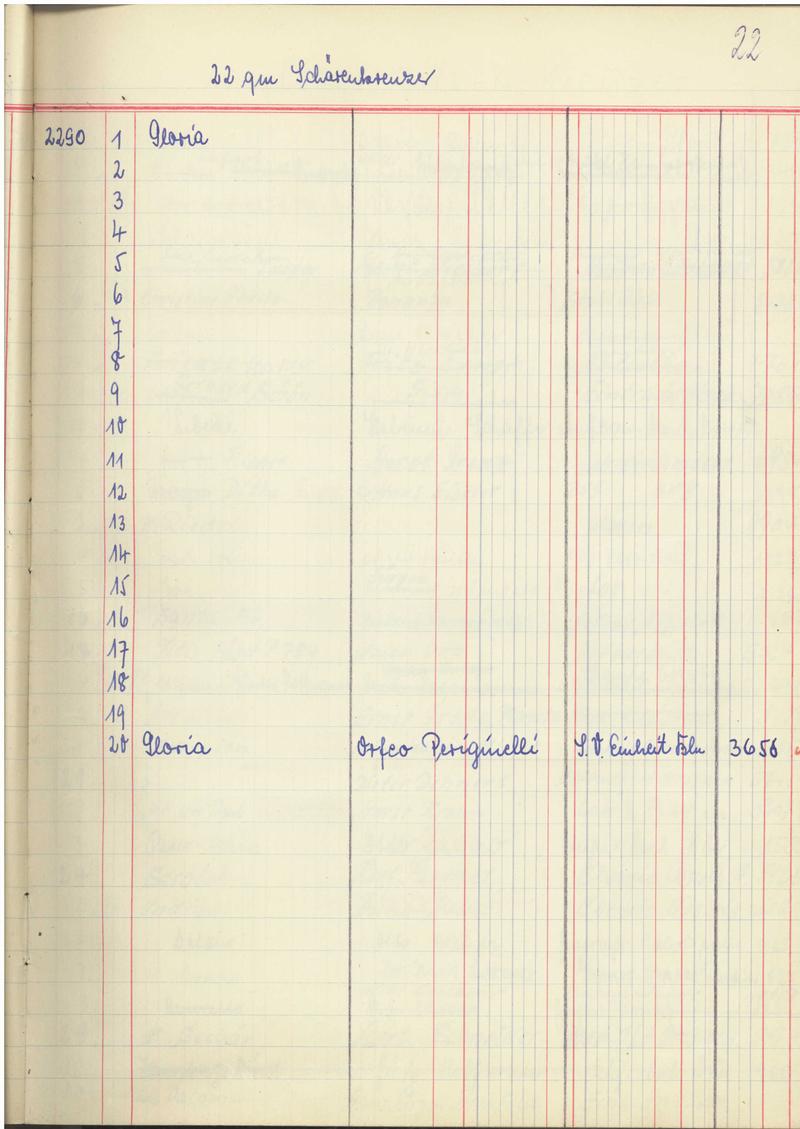 22
22 qm Schärenkreuzer
2290 1 Gloria
2
3
4
5
6
7
8
9
10
11
12
13
14
15
16
17
18
19
20 Gloria Orfeo Periginelli S.V. Einheit Bln 3656